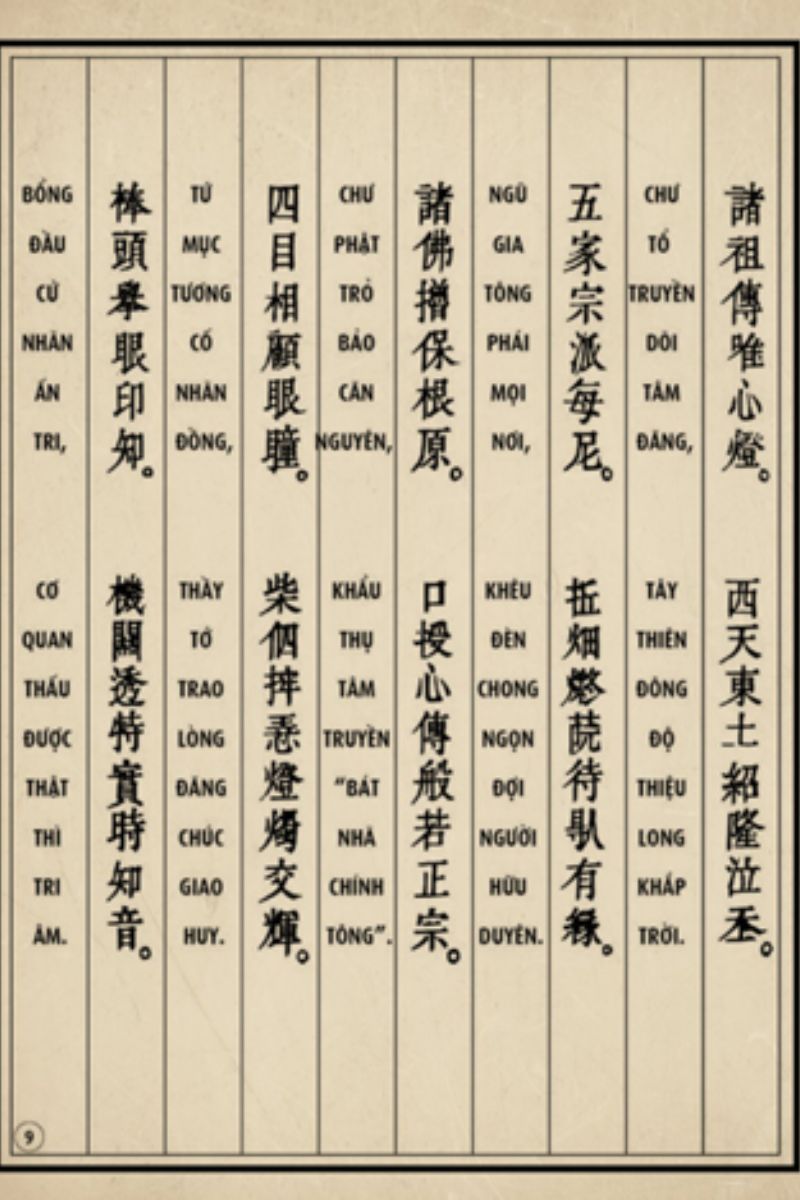 諸祖傳唯心燈。西天東土紹隆泣𡗶。
CHƯ TỔ TRUYỀN DÕI TÂM ĐĂNG, TÂY THIÊN ĐÔNG ĐỘ THIỆU LONG KHẮP TRỜI.
五家宗派每尼。畑待𠊛有緣。
NGŨ GIA TÔNG PHÁI MỌI NƠI, KHÊU ĐÈN CHONG NGỌN ĐỢI NGƯỜI HỮU DUYÊN.
諸佛保根原。口授心傳般若正宗。
CHƯ PHẬT TRỎ BẢO CĂN NGUYÊN, KHẨU THỤ TÂM TRUYỀN "BÁT NHÃ CHÍNH TÔNG".
四目相顧眼瞳。柴𢚸燈燭交輝。
TỨ MỤC TƯƠNG CỐ NHÃN ĐỒNG, THẦY TỚ TRAO LÒNG ĐĂNG CHÚC GIAO HUY.
棒頭舉眼印知。機關透特實時知音。
BỔNG ĐẦU CỬ NHÃN ẤN TRI, CƠ QUAN THẤU ĐƯỢC THẬT THÌ TRI ÂM.
9